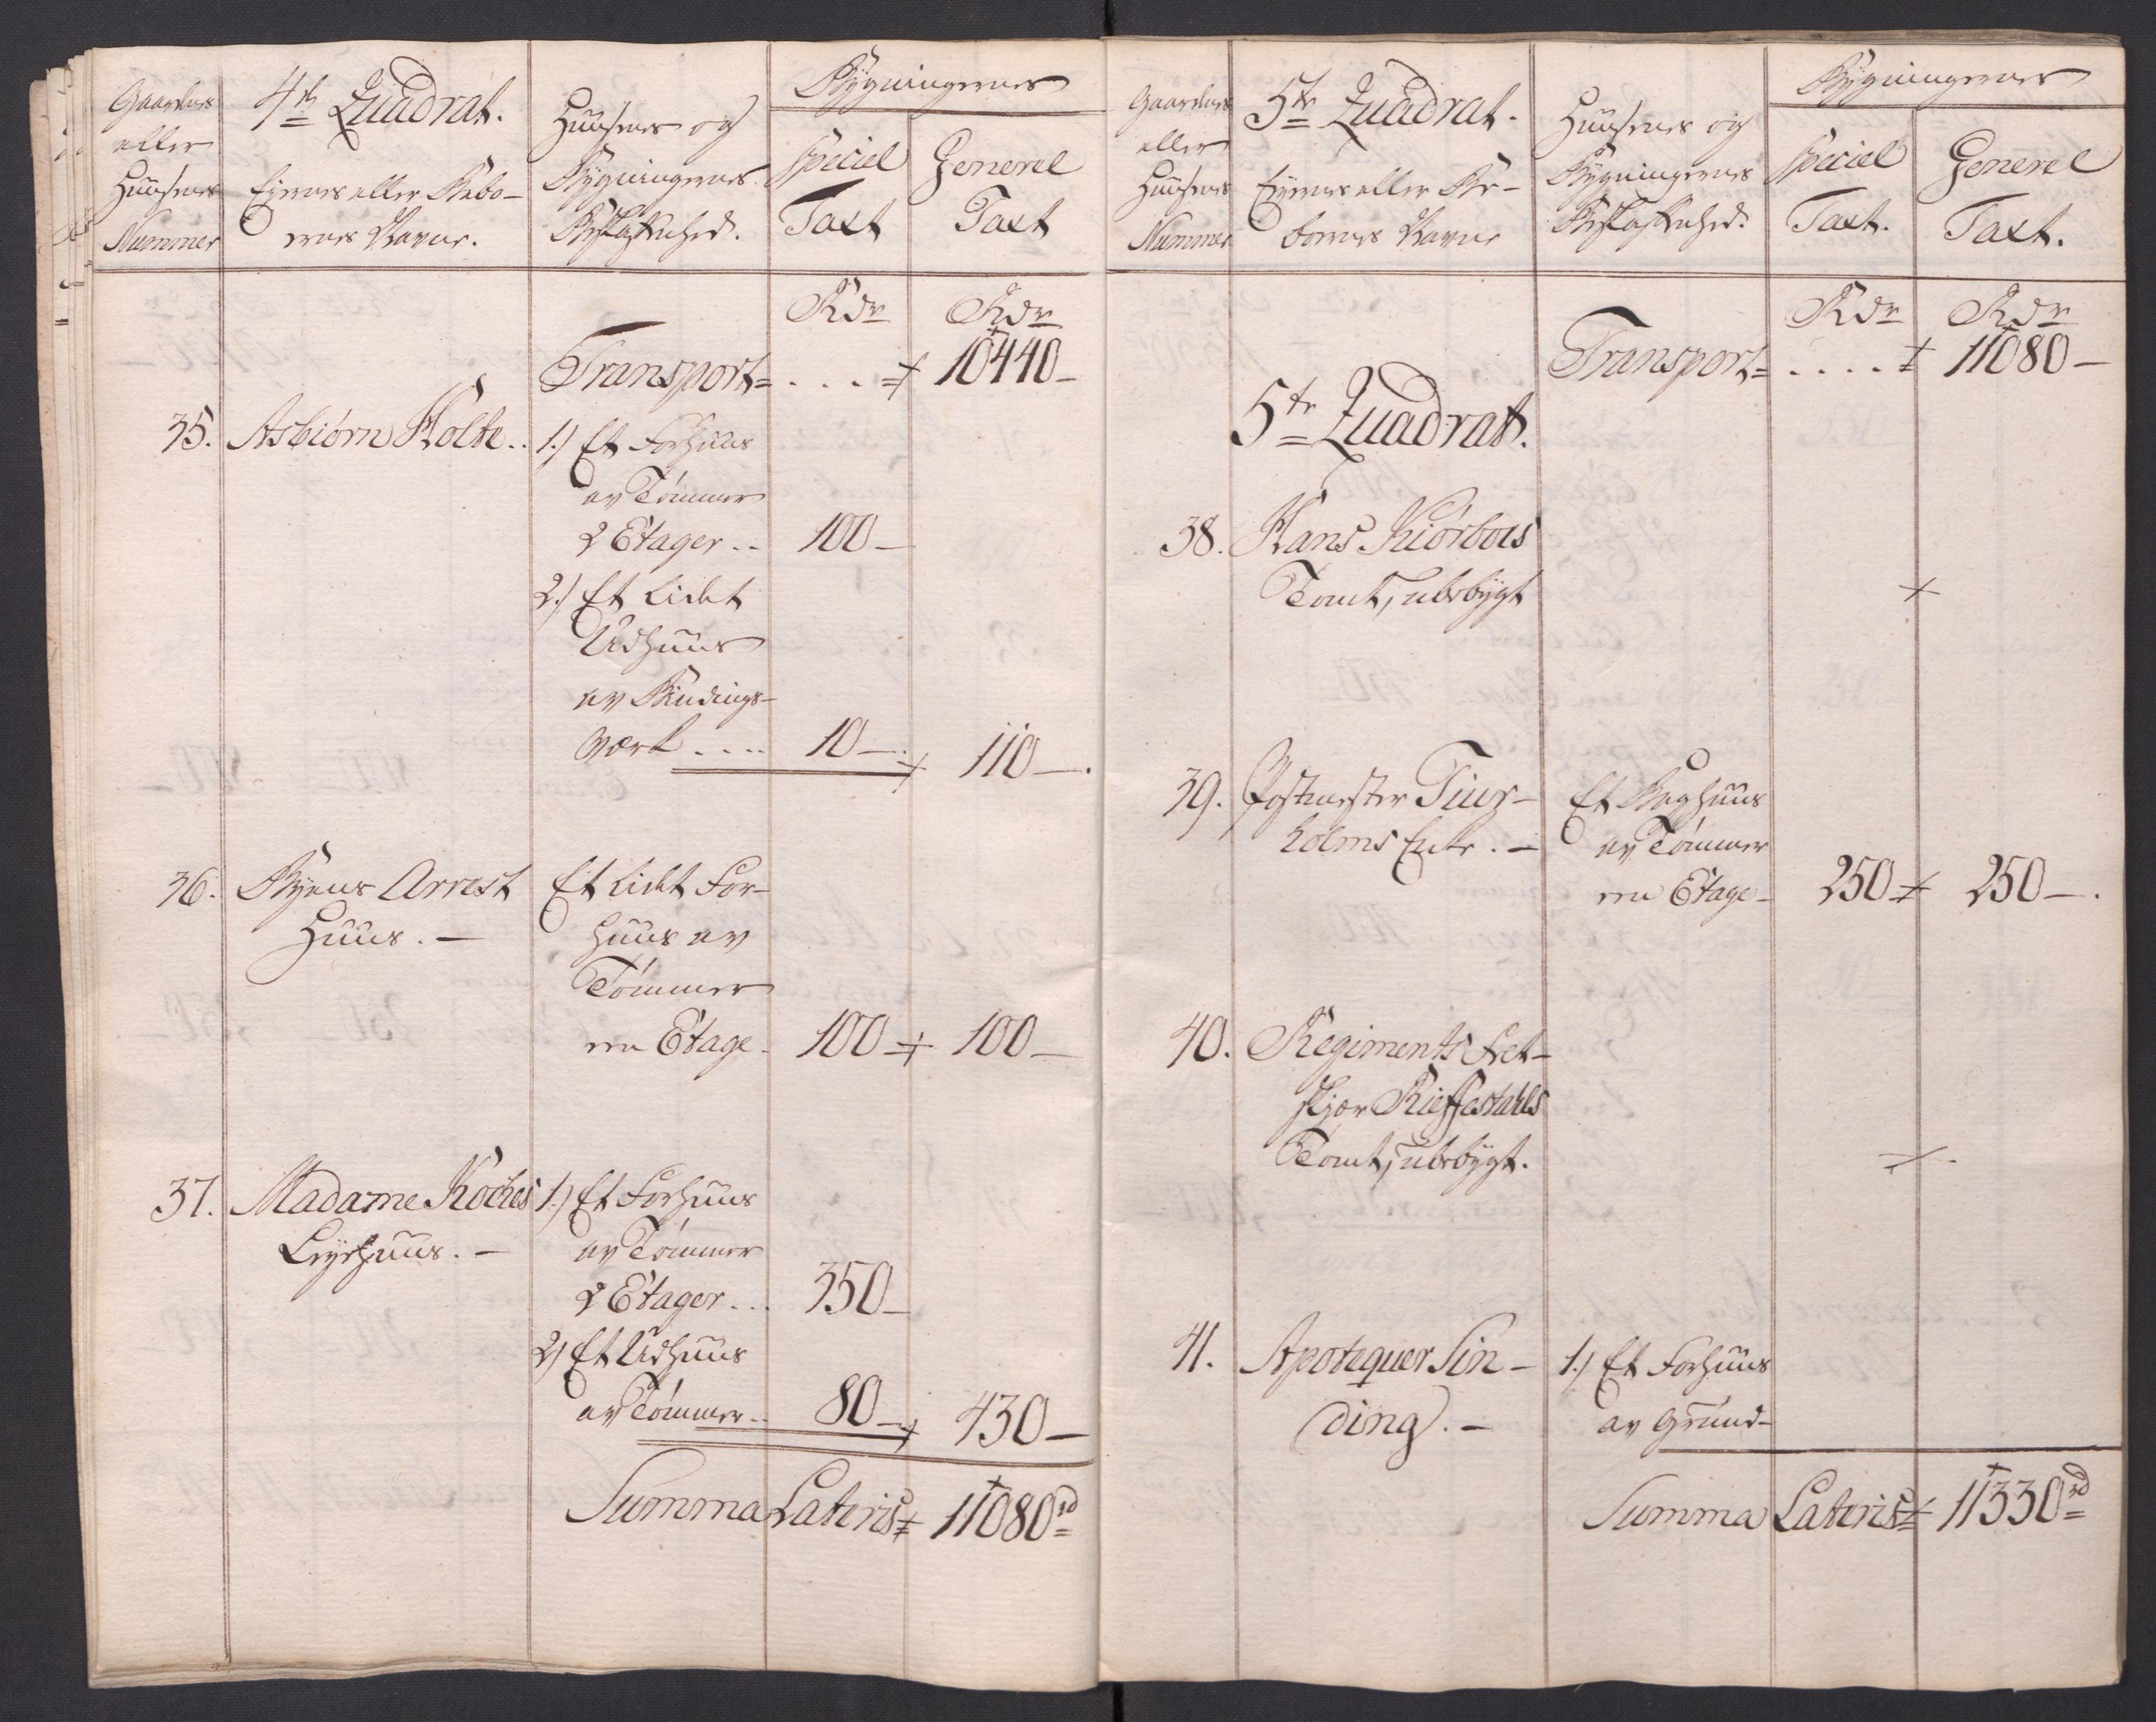 Gaardenes
eller
Huusenes
Nummer
4de Quadrat.
Eyernes eller Bebo-
ernes Navne.
Huusenes og
Bygningernes
Beskaffenhed.
Bygningernes
Speciel
Taxt
Generel
Taxt
Rdr Rdr
Transport= . . . = 10440-
35. Asbiörn Holte.. 1.) Et Forhuus
av Tömmer
2 Etager.. 100-
2.) Et lidet
Udhuus
av Bindings-
værk.... 10- 110-.
36. Byens Arrest Et lidet For-
Huus.- huus av
Tömmer
een Etage- 100- 100-
37. Madame Koches 1.) Et Forhuus
Leyehuus.- av Tömmer
2 Etager... 350-
2) Et Udhuus
av Tömmer.. 80- 430-
Summa Lateris= 11080rd
Gaardenes
eller
Huusenes
Nummer
5te Quadrat.
Eyernes eller Be-
boernes Navne
Huusenes og
Bygningernes
Beskaffenhed.
Bygningernes
Speciel
Taxt.
Generel
Taxt.
Rdr Rdr
Transport= . . . . 11080-
5te Quadrat.
38. Hans Kiörboes
Tomt, ubebygt
39. Postmester Tiur- Et Baghuus
holms Enke.- av Tömmer
een Etage- 250 250-.
40. Regiments Felt-
skjær Rieffestahls
Tomt, ubebygt.
41. Apotequer Sin- 1.) Et Forhuus
ding.- av Grund-
Summa Lateris= 11330rd